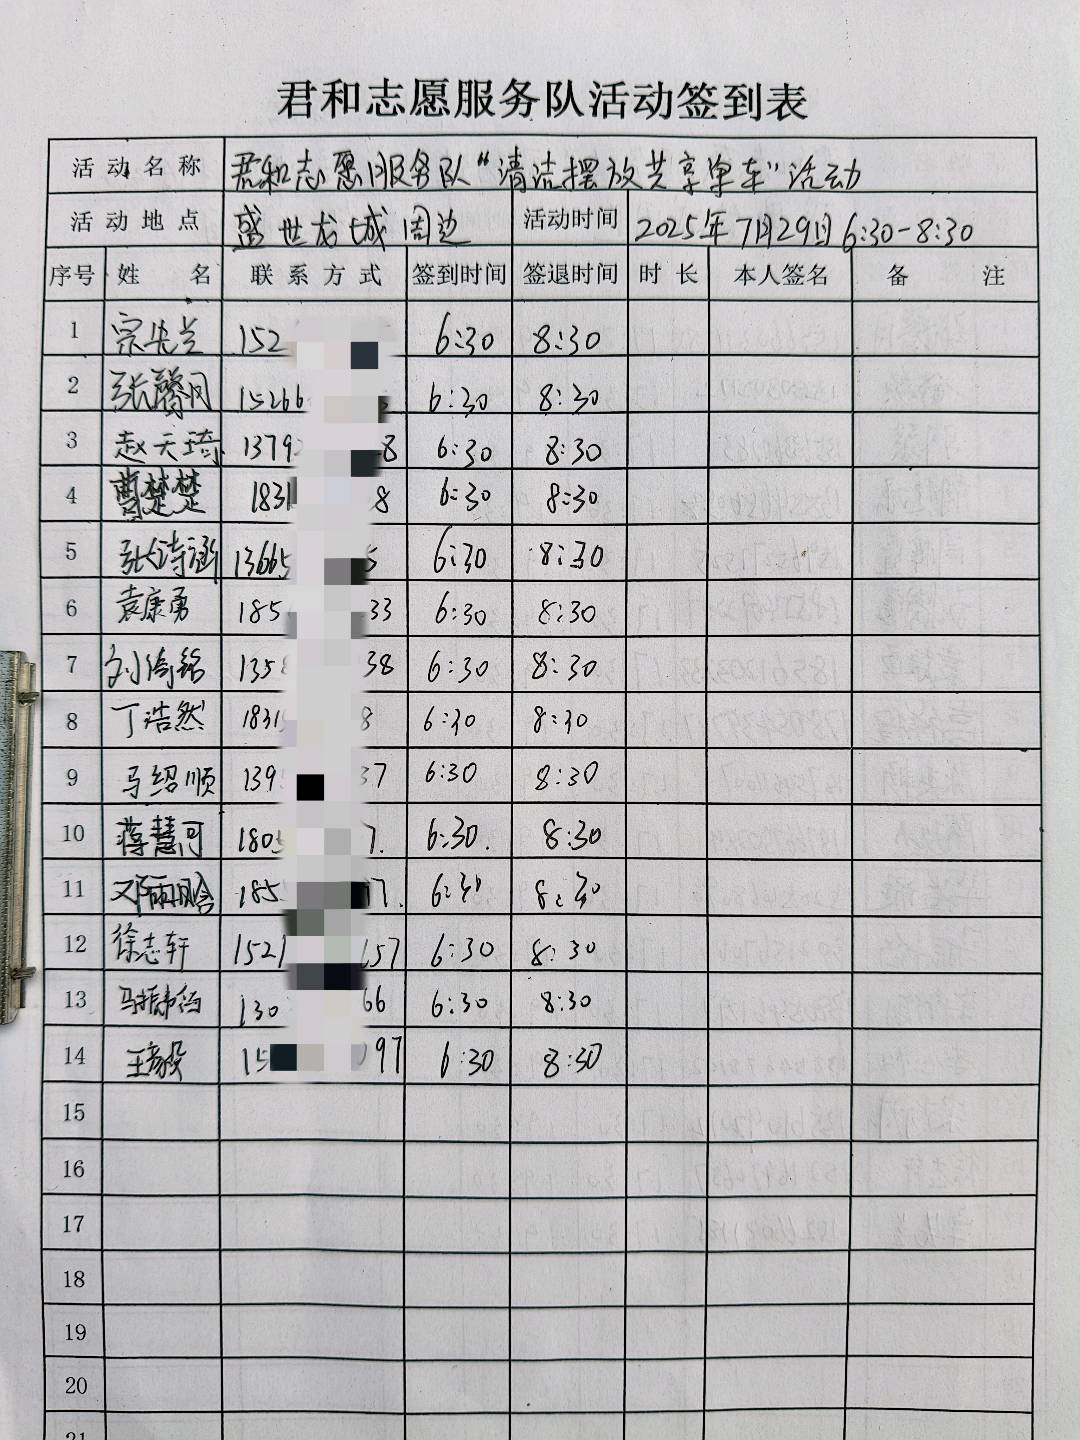 君和志愿服务队活动签到表
活动名称 君和志愿服务队“清洁摆放共享单车”活动
活动地点 盛世龙城周边 活动时间 2025年7月29日 6:30-8:30
序号 姓名 联系方式 签到时间 签退时间 时长 本人签名 备注
1 宗先兰 152 6:30 8:30
2 张馨月 15266 6:30 8:30
3 赵天琦 1379 8 6:30 8:30
4 曹楚楚 1831 8 6:30 8:30
5 张诗涵 13665 5 6:30 8:30
6 袁康勇 185 33 6:30 8:30
7 135 38 6:30 8:30
8 丁浩然 1831 8 6:30 8:30
9 马绍顺 139 37 6:30 8:30
10 蒋慧可 180 7. 6:30. 8:30
11 185 17. 8:30
12 徐志轩 1521 157 6:30 8:30
13 130 66 6:30 8:30
14 王毅 15 97 6:30 8:30
15
16
17
18
19
20
21